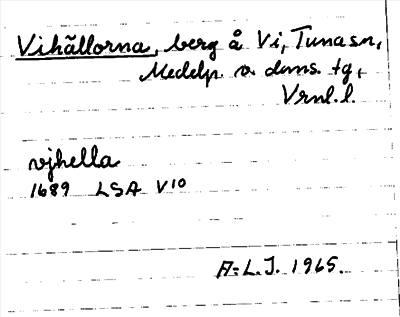 Vihällorna, berg å Vi, Tuna sn,
Medelp. o. doms. tg,
Vrnl. l.
vjhella
1689 LSA V10
A=L.J. 1965.